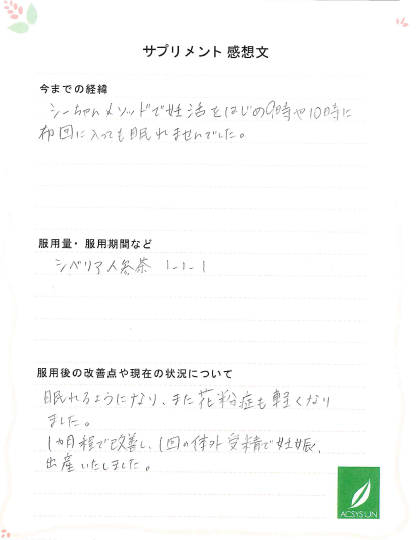 サプリメント 感想文
今までの経緯
シーちゃんメソッドで妊活をはじめ9時や10時に
布団に入っても眠れませんでした。
服用量・服用期間など
シベリア人参茶 1-1-1
服用後の改善点や現在の状況について
眠れるようになり、また花粉症も軽くなり
ました。
1ヵ月程で改善し、1回の体外受精で妊娠、
出産いたしました。
ACSYSUN